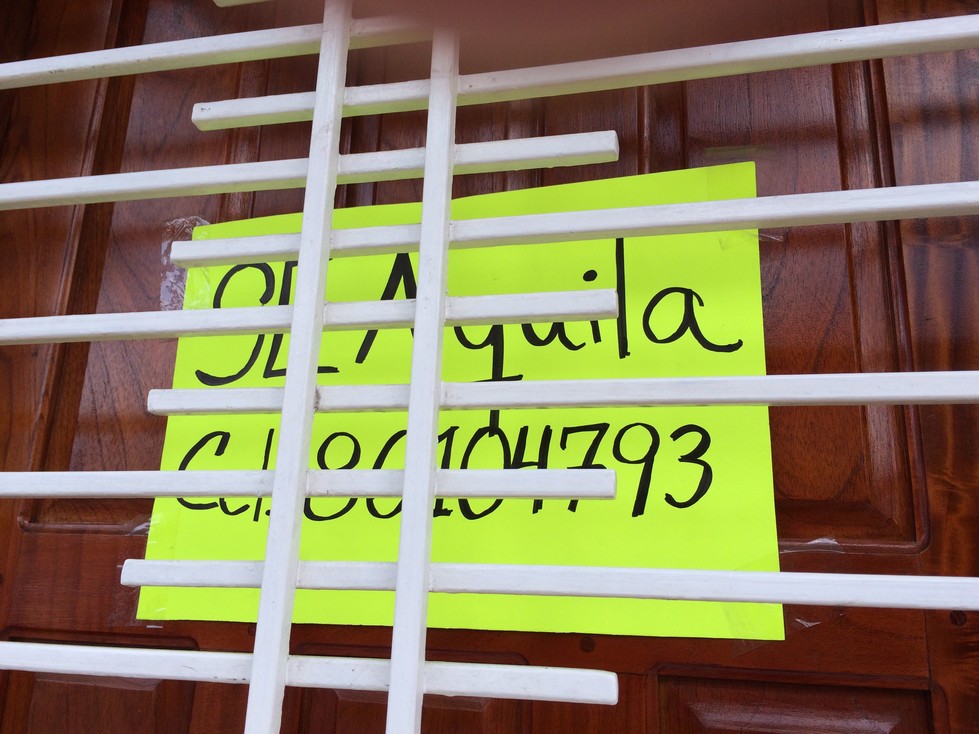 SE Aquila
Cel. 80104793